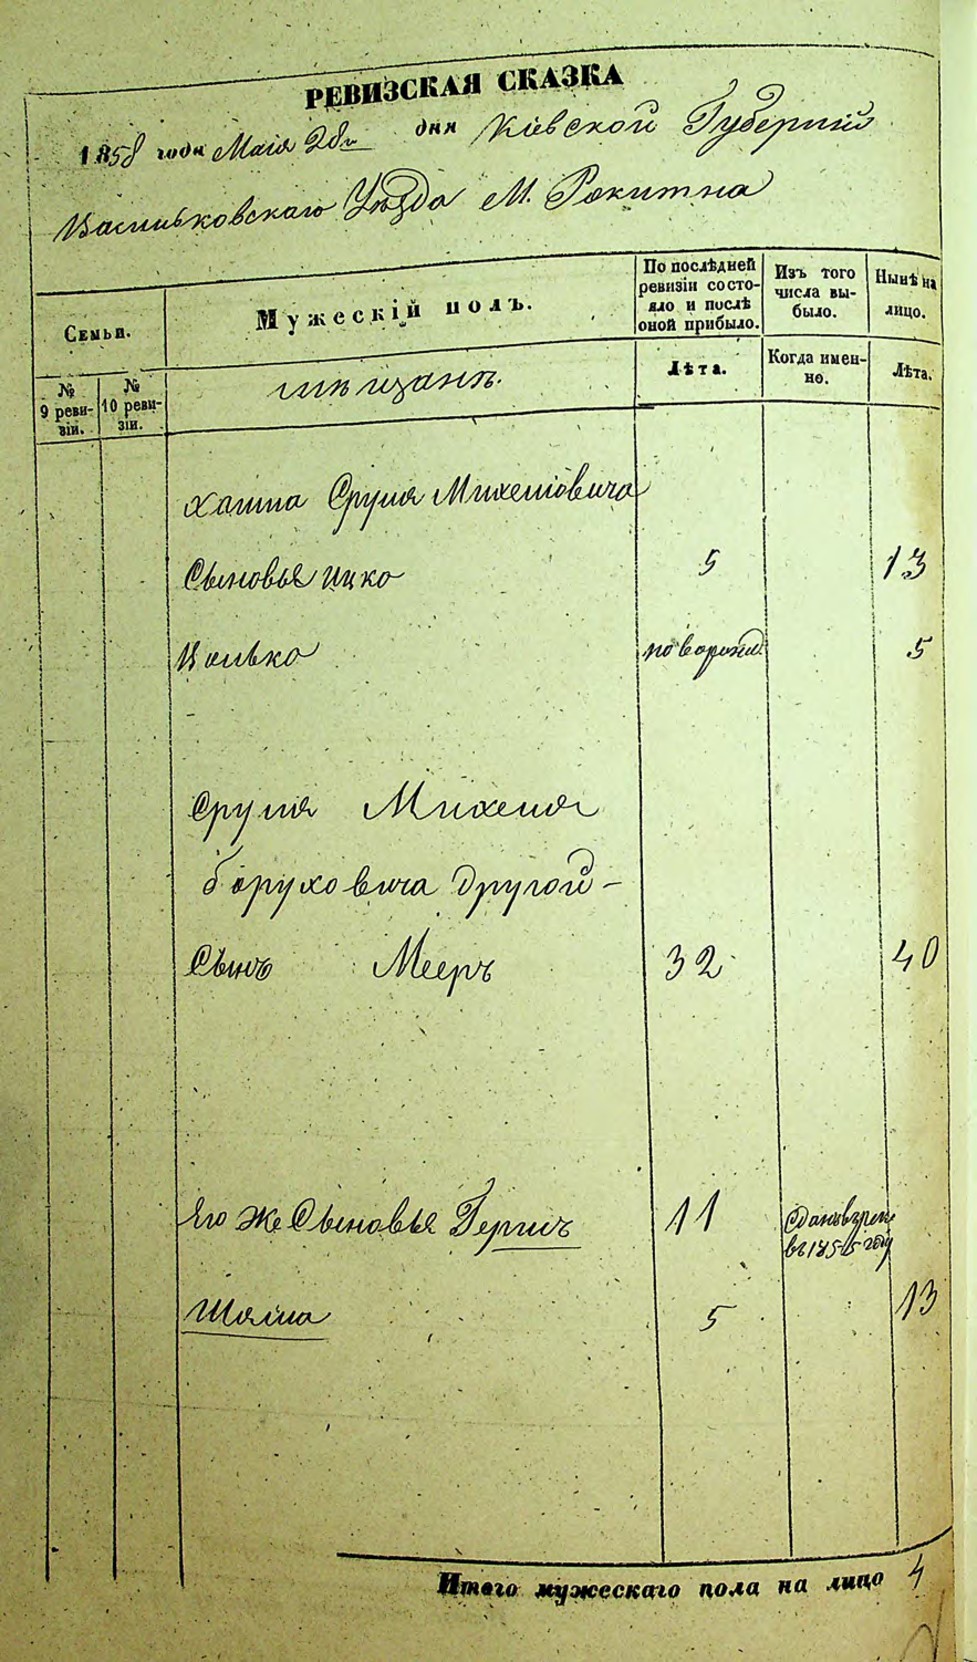 РЕВИЗСКАЯ СКАЗКА
1858 года Маія 28го дня Кіевской Губерніи
Васильковскаго Уѣзда М. Рокитна
Семьи.
Мужескій полъ.
По послѣдней ревизіи состояло и послѣ оной прибыло.
Изъ того числа выбыло.
Нынѣ на лицо.
№ 9 ревизіи.
№ 10 ревизіи.
мѣщанъ.
Лѣта.
Когда именно.
Лѣта.
Хаима Сруля Михелiовича
Сыновья Ицко 5 13
Волько новорожд. 5
Сруля Михеля
Боруховича другой
Сынъ Мееръ 32 40
Его же Сыновья Гершъ 11 сданъ в рек. в 1855 году
Шлёма 5 13
Итого мужескаго пола на лицо 4